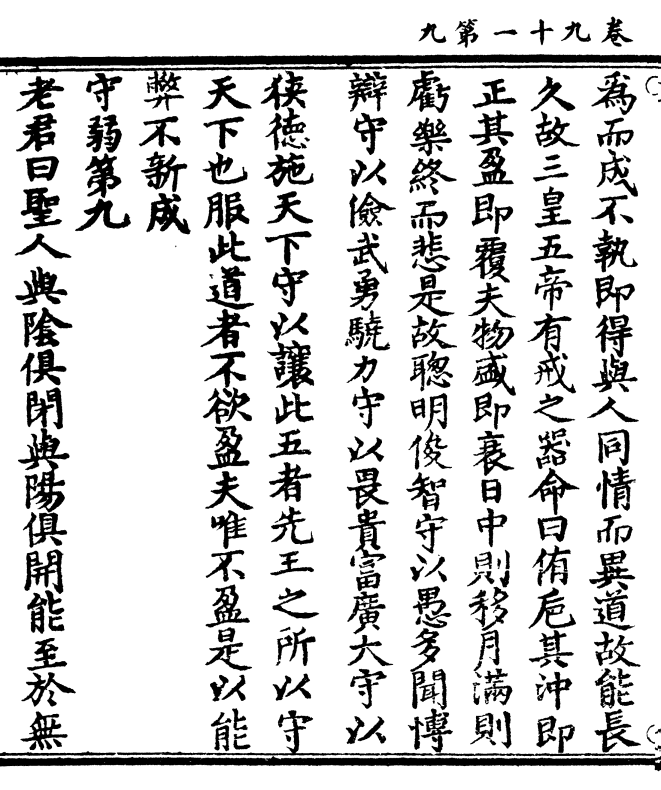 卷九十一第九
為而成不執即得與人同情而異道故能長
久故三皇五帝有戒之器命曰侑卮其沖即
正其盈即覆夫物盛即衰日中則移月滿則
虧樂終而悲是故聰明俊智守以愚多聞博
辯守以儉武勇驍力守以畏貴富廣大守以
狹德施天下守以讓此五者先王之所以守
天下也服此道者不欲盈夫唯不盈是以能
弊不新成
守弱第九
老君曰聖人與陰俱閉與陽俱開能至於無